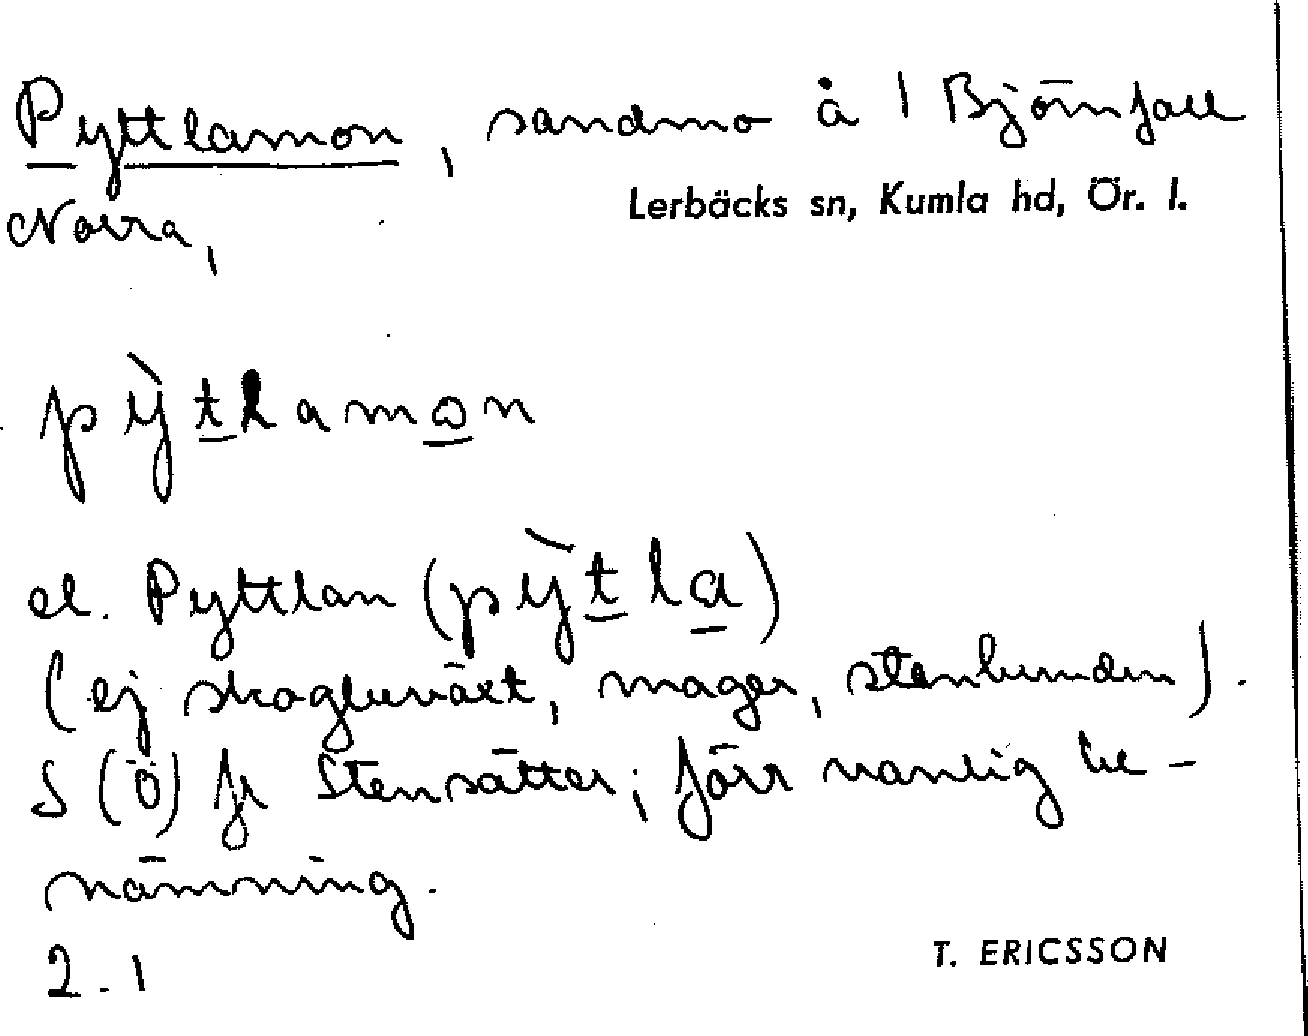 Pyttlamon, sandmo å 1 Björnfall
Lerbäcks sn, Kumla hd, Ör. l.
Norra,
pỳtlamωn
el. Pyttlan (pỳtla)
(ej skogbeväxt, mager, stenbunden).
S (Ö) fr Stensätter; förr vanlig be-
nämning.
2.1
T. ERICSSON